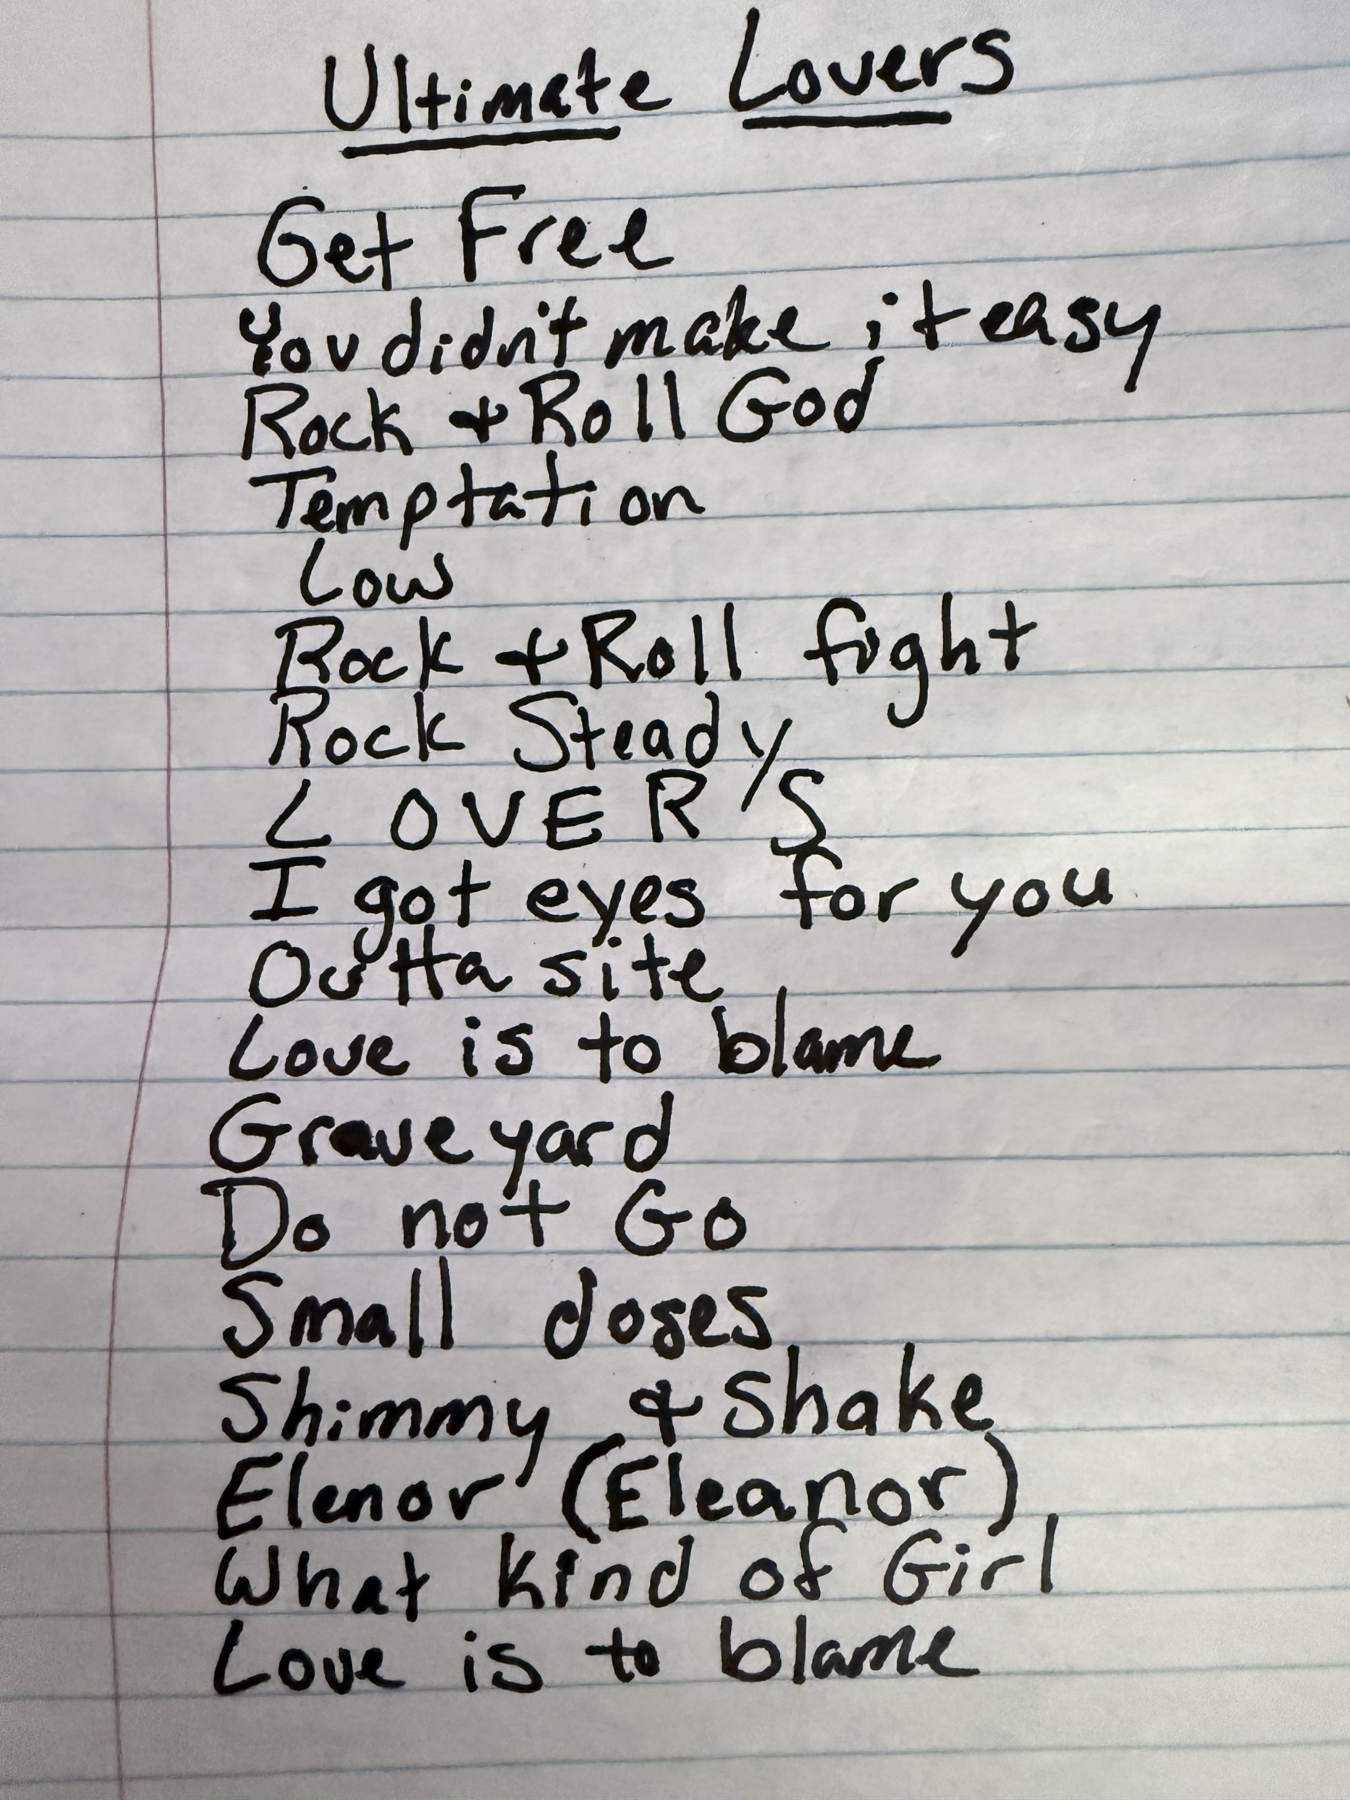 Ultimate Lovers
Get Free
You didn't make it easy
Rock + Roll God
Temptation
Low
Rock + Roll fight
Rock Steady
L O V E R / S
I got eyes for you
Outta site
Love is to blame
Graveyard
Do not Go
Small doses
Shimmy & Shake
Elenor (Eleanor)
What Kind of Girl
Love is to blame